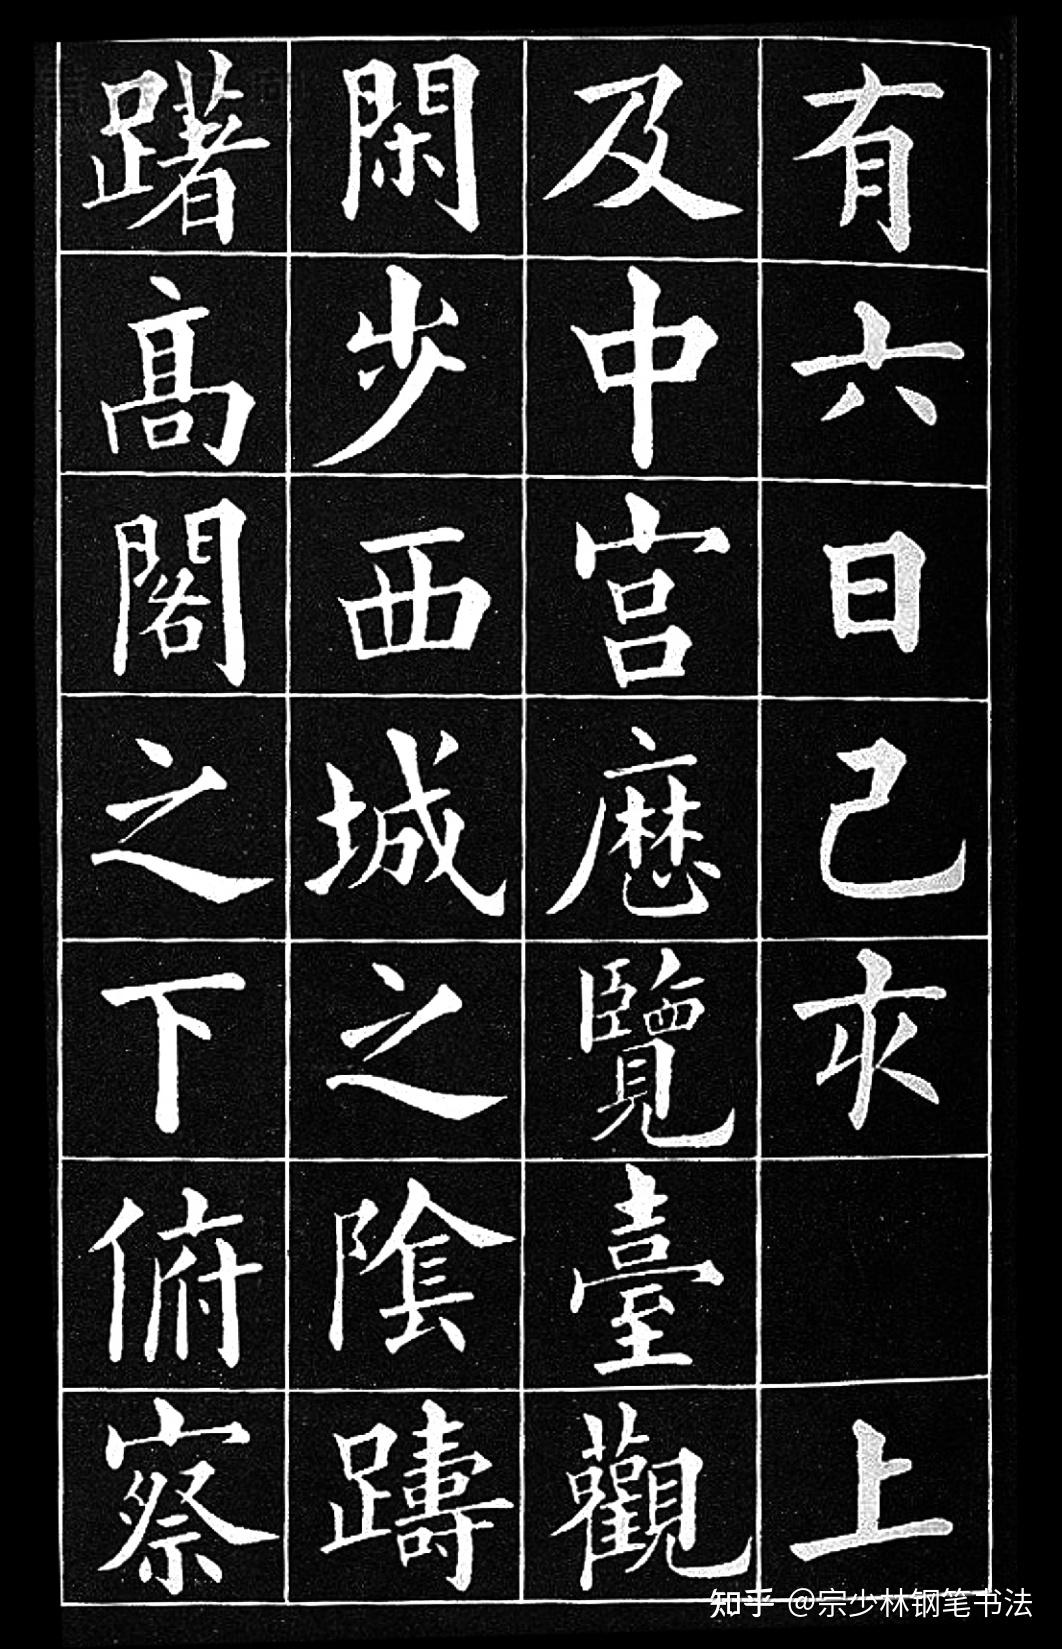 有六日己亥 上
及中宮歷覽臺觀
閑步西城之陰躊
躇高閣之下俯察
知乎 @宗少林钢笔书法